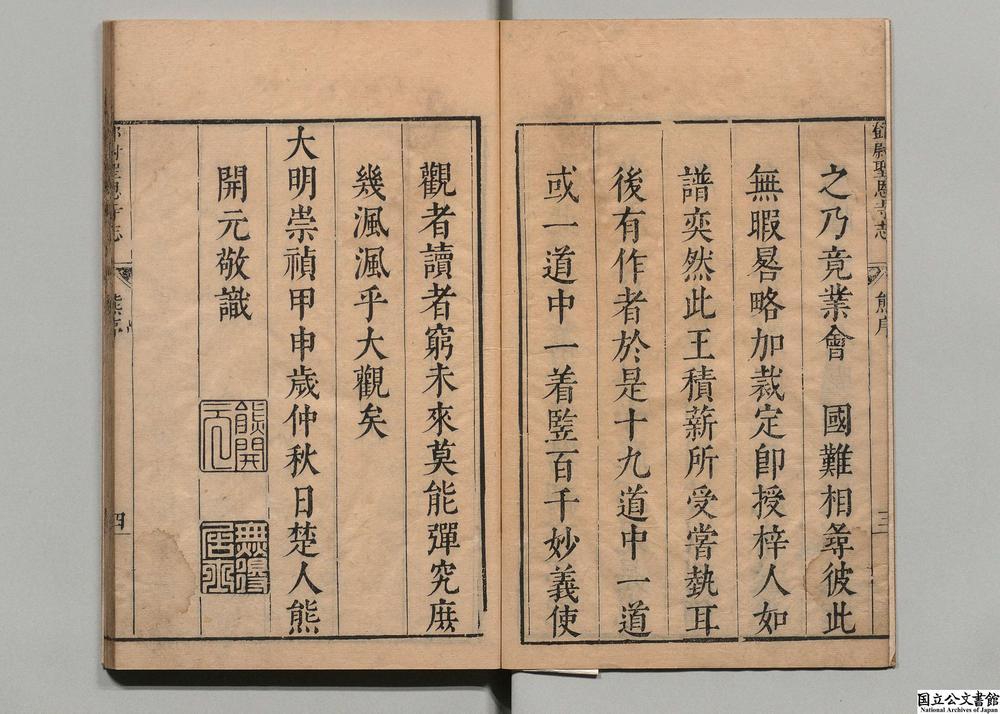 鄧尉聖恩寺志
熊序
三
之乃竟業會　國難相尋彼此
無暇畧略加裁定即授梓人如
譜奕然此王積薪所受嘗執耳
後有作者於是十九道中一道
或一道中一着豎百千妙義使
觀者讀者窮未來莫能彈究庶
幾渢渢乎大觀矣
大明崇禎甲申歲仲秋日楚人熊
開元敬識
熊開元
四
国立公文書館
National Archives of Japan